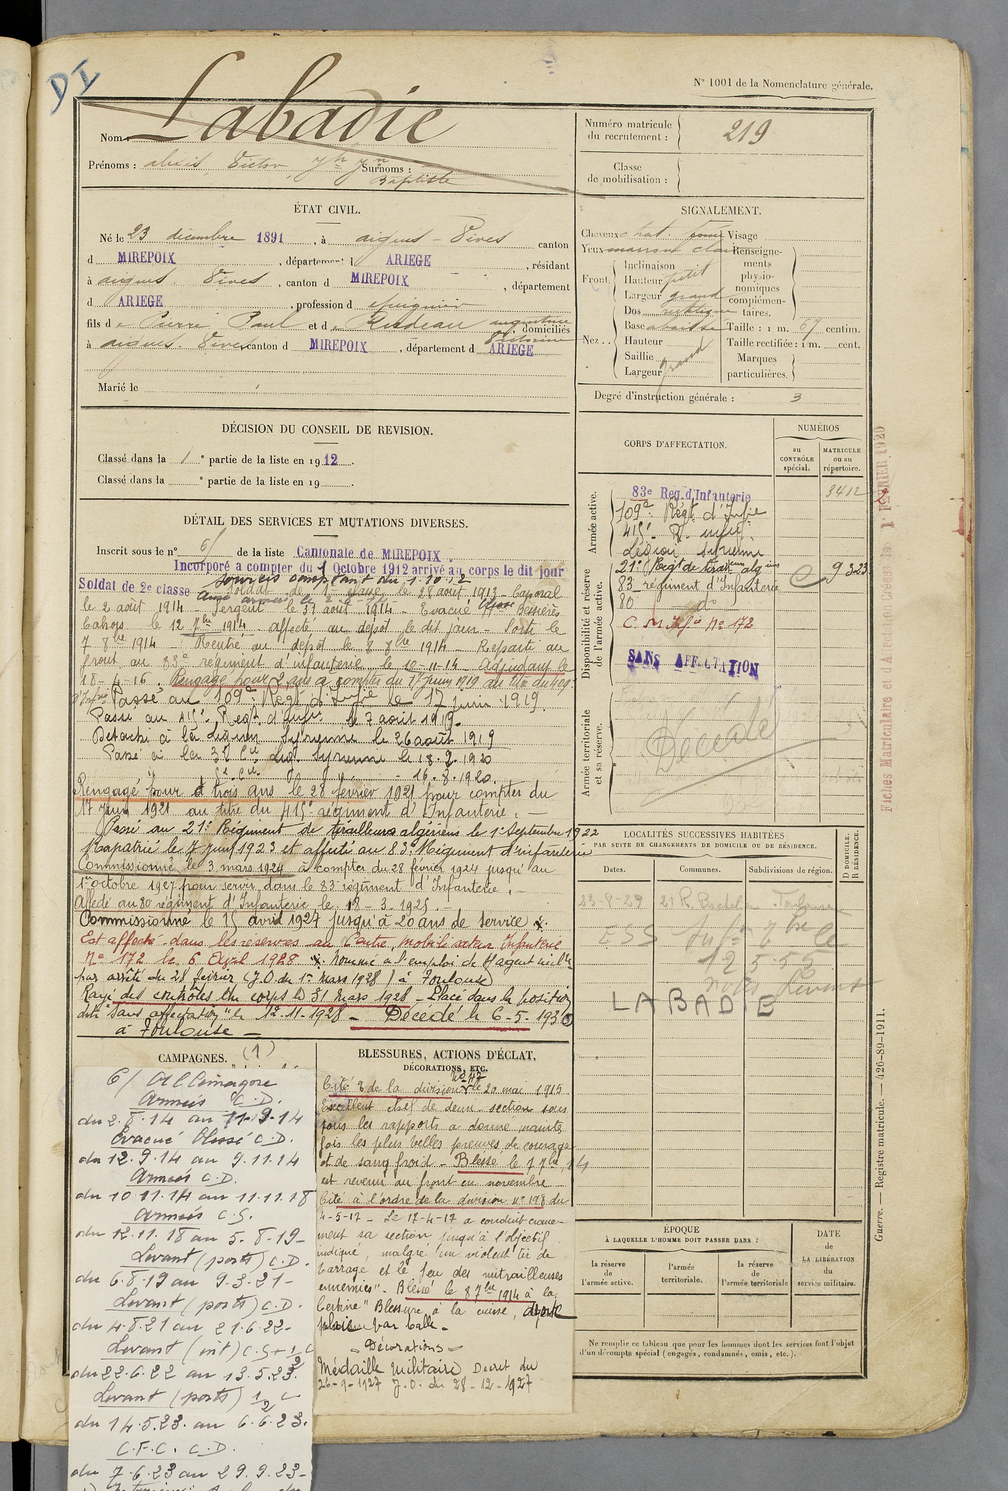 DI
N° 1001 de la Nomenclature générale.
Nom : Labadie
Prénoms : Alexis Victor Surnoms :
Baptiste
Numéro matricule du recrutement : 219
Classe de mobilisation :
ÉTAT CIVIL.
Né le 23 décembre 1891, à aigues-Vives canton
d MIREPOIX, département d ARIEGE, résidant
à aigues Vives, canton d MIREPOIX, département
d ARIEGE, profession d
fils de Pierre Paul et de domiciliés
à aigues Vives canton d MIREPOIX, département d ARIEGE
Marié le
SIGNALEMENT.
Cheveux chat. Visage
Yeux marron clair Renseignements physionomiques complémentaires.
Front Inclinaison
Hauteur petit
Largeur grand
Nez Dos rectiligne
Base abaissée Taille : 1 m. 67 centim.
Hauteur Taille rectifiée : 1 m. cent.
Saillie Marques particulières.
Largeur grand
Degré d'instruction générale : 3
DÉCISION DU CONSEIL DE REVISION.
Classé dans la 1e partie de la liste en 1912.
Classé dans la e partie de la liste en 19
DÉTAIL DES SERVICES ET MUTATIONS DIVERSES.
Inscrit sous le n° 6 de la liste Cantonale de MIREPOIX
Incorporé a compter du 1 Octobre 1912 arrivé au corps le dit jour
Soldat de 2e classe services comptant du 1.10.12
Soldat de 1re classe le 28 août 1913 - Caporal
le 2 août 1914 - Sergent le 31 août 1914 - Evacué
Cahors le 12 7bre 1914. affecté au dépôt le dit jour -
7 8bre 1914 - Rentré au dépôt le 8 8bre 1914 - Reparti au
front au 83e régiment d'infanterie le 10-11-14 - Adjudant le
18-4-16. Rengagé pour 2 ans à compter du 17 juin 1919 au titre du 409e
d'Infie Passé au 109e Régt d'Infie le 17 juin 1919.
Passé au 415e Regt d'Infie le 7 août 1919.
Détaché à la légion Syrienne le 26 août 1919
Passé à la 3e Cie Leg. Syrienne le 18.2.1920
16.8.1920.
Rengagé pour trois ans le 28 février 1921 pour compter du
17 juin 1921 au titre du 415e régiment d'Infanterie. -
Passé au 21e Régiment de tirailleurs algériens le 1er Septembre 1922
Rapatrié le 7 juin 1923 et affecté au 83e Régiment d'infanterie
Commissionné le 3 mars 1924 à compter du 28 février 1924 jusqu'au
1er octobre 1927 pour servir dans le 83e régiment d'Infanterie. -
Affecté au 80e régiment d'Infanterie le 18-3-1925.
Commissionné le 15 avril 1927 jusqu'à 20 ans de service.
Est affecté dans les réserves au Centre mobilisateur Infanterie
N° 172 le 6 Avril 1928 nommé à l'emploi de
par arrêté du 28 février (J.O du 1er mars 1928) à Toulouse
Rayé des contrôles du corps le 31 mars 1928 - Placé dans la position
dite "sans affectation" le 12.11.1928 - Décédé le 6-5-1930
à Toulouse -
CORPS D'AFFECTATION.
NUMÉROS
au CONTRÔLE spécial.
MATRICULE ou au répertoire.
Armée active.
83e Reg. d'Infanterie 3412
109e Régt d'Infie
415e R. infie
Légion Syrienne
Disponibilité et réserve de l'armée active.
21e Régt de tiraill algns 9323
83 régiment d'Infanterie
80 do
C. M. Infie N° 172
SANS AFFECTATION
Armée territoriale et sa réserve.
Décédé
LOCALITÉS SUCCESSIVES HABITÉES
PAR SUITE DE CHANGEMENTS DE DOMICILE OU DE RÉSIDENCE.
Dates. Communes. Subdivisions de région. D DOMICILE. R RÉSIDENCE.
23-9-29 21 R. Bachelier Toulouse
12 5 55
LABADIE
CAMPAGNES. (1)
C/ Allemagne
Armées C.D.
du 2.8.14 au 11.9.14
Evacué blessé C.D.
du 12.9.14 au 9.11.14
Armées C.D.
du 10.11.14 au 11.11.18
Armées C.S.
du 12.11.18 au 5.8.19-
Levant (ports) C.D.
du 6.8.19 au 9.3.21-
Levant (ports) C.D.
du 4.8.21 au 21.6.22-
Levant (int) C.S+½ C
du 22.6.22 au 13.5.23.
Levant (ports) ½ C
du 14.5.23. au 6.6.23.
C.F.C. C.D.
du 7.6.23 au 29.9.23-
BLESSURES, ACTIONS D'ÉCLAT, DÉCORATIONS, ETC.
Cité à de la division le 20 mai 1915
Excellent chef de demi-section sous
tous les rapports a donné maintes
fois les plus belles preuves de courage
et de sang froid - Blessé le 7 7bre 14
est revenu au front en novembre
Cité à l'ordre de la division n° 198 du
4-5-17 - Le 17-4-17 a conduit crane-
ment sa section jusqu'à l'objectif
indiqué, malgré un violent tir de
barrage et le feu des mitrailleuses
ennemies". Blessé le 8 7bre 1914 à la
Certine" Blessure à la cuisse, droite
plaie par balle -
- Décorations -
Médaille Militaire Decret du
26-9-1927 J.O. du 28-12-1927
ÉPOQUE
À LAQUELLE L'HOMME DOIT PASSER DANS :
la réserve de l'armée active.
l'armée territoriale.
la réserve de l'armée territoriale
DATE de LA LIBÉRATION du service militaire.
Ne remplir ce tableau que pour les hommes dont les services font l'objet
d'un décompte spécial (engagés, condamnés, omis, etc.).
Guerre. — Registre matricule. — 426-89-1911.